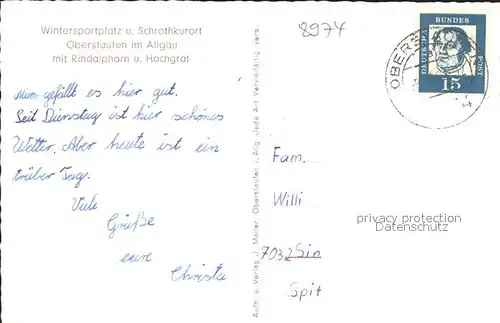 Wintersportplatz u. Schrothkurort
Oberstaufen im Allgäu
mit Rindalphorn u. Hochgrat
8974
DEUTSCHE
BUNDES
POST
15
Mir gefällt es hier gut.
Seit Dienstag ist hier schönes
Wetter. Aber heute ist ein
trüber Tag.
Viele
Grüße
eure
Christa
Aufn. u. Verlag J. Mader, Oberstaufen i. Allg. Jede Art Vervielfältig. verb.
Fam.
Willi
privacy protection
Datenschutz
7032 Sin
Spit